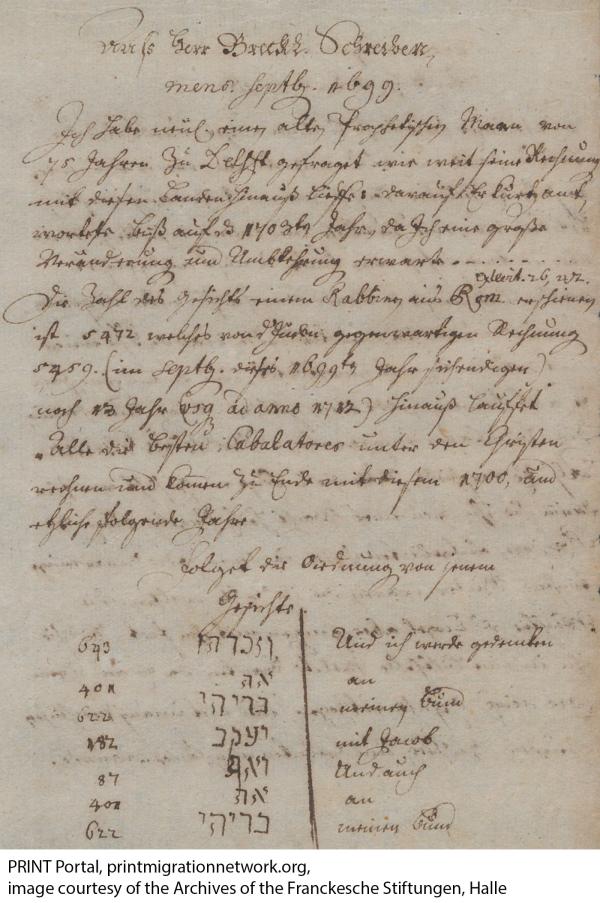 Auß Herr Breckl. Schreiben,
mens. septbr. 1699.
Ich habe neul. einen alten Prophetischen Mann von
75 Jahren zu Delfft gefraget wie weit seine Rechnung
mit diesen Landen hinauß lieffe: darauf Er kurtz ant,
wortete biß auf d. 1703te Jahr, da Ich eine große
Veränderung und Umbkehrung erwarte - - - -
Levit. 26, 42.
Die Zahl des Gesichts einem Rabbinen aus Rom erschienen
ist 5472. welches von d. Juden gegenwärtigen Rechnung
5459. (im septbr. dieses 1699ten Jahr sich endigen)
noch 13 Jahr (usq ad anno 1712) hinauß lauffet
Alle die besten Cabalatores unter den Christen
rechnen und komen zu Ende mit diesem 1700, und
etzliche folgende Jahre
Folget die Ordnung von jenem
Gesichte
643 וזכרתי Und ich werde gedencken
401 את an
622 בריתי meinen Bund
182 יעקב mit Jacob
87 ואף Und auch
401 את an
622 בריתי meinen Bund
PRINT Portal, printmigrationnetwork.org,
image courtesy of the Archives of the Franckesche Stiftungen, Halle